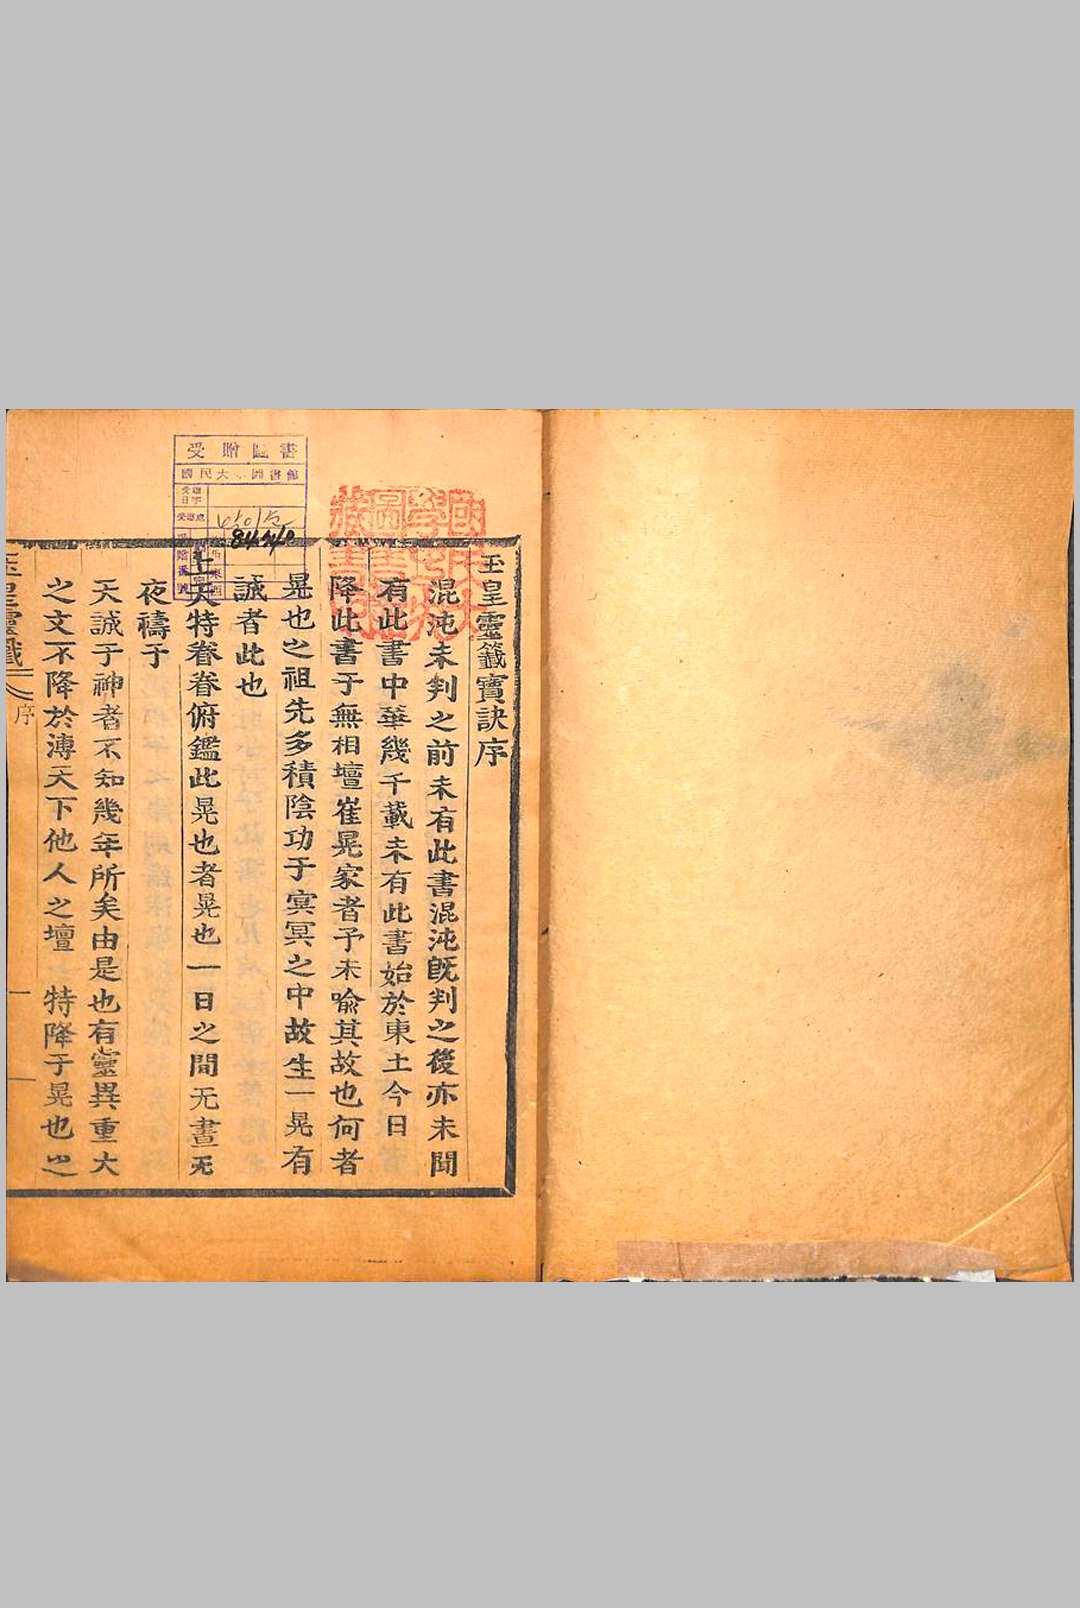 玉皇靈籤寶訣序
混沌未判之前未有此書混沌旣判之後亦未聞
有此書中華幾千載未有此書始於東土今日
降此書于無相壇崔晃家者予未喩其故也何者
晃也之祖先多積陰功于冥冥之中故生一晃有
誠者此也
上天特眷眷俯鑑此晃也者晃也一日之間无晝无
夜禱于
天誠于神者不知幾年所矣由是也有靈異重大
之文不降於溥天下他人之壇特降于晃也之
玉皇靈籤
序
一
受贈圖書
國民大 圖書館
國民大學校圖書館藏書印